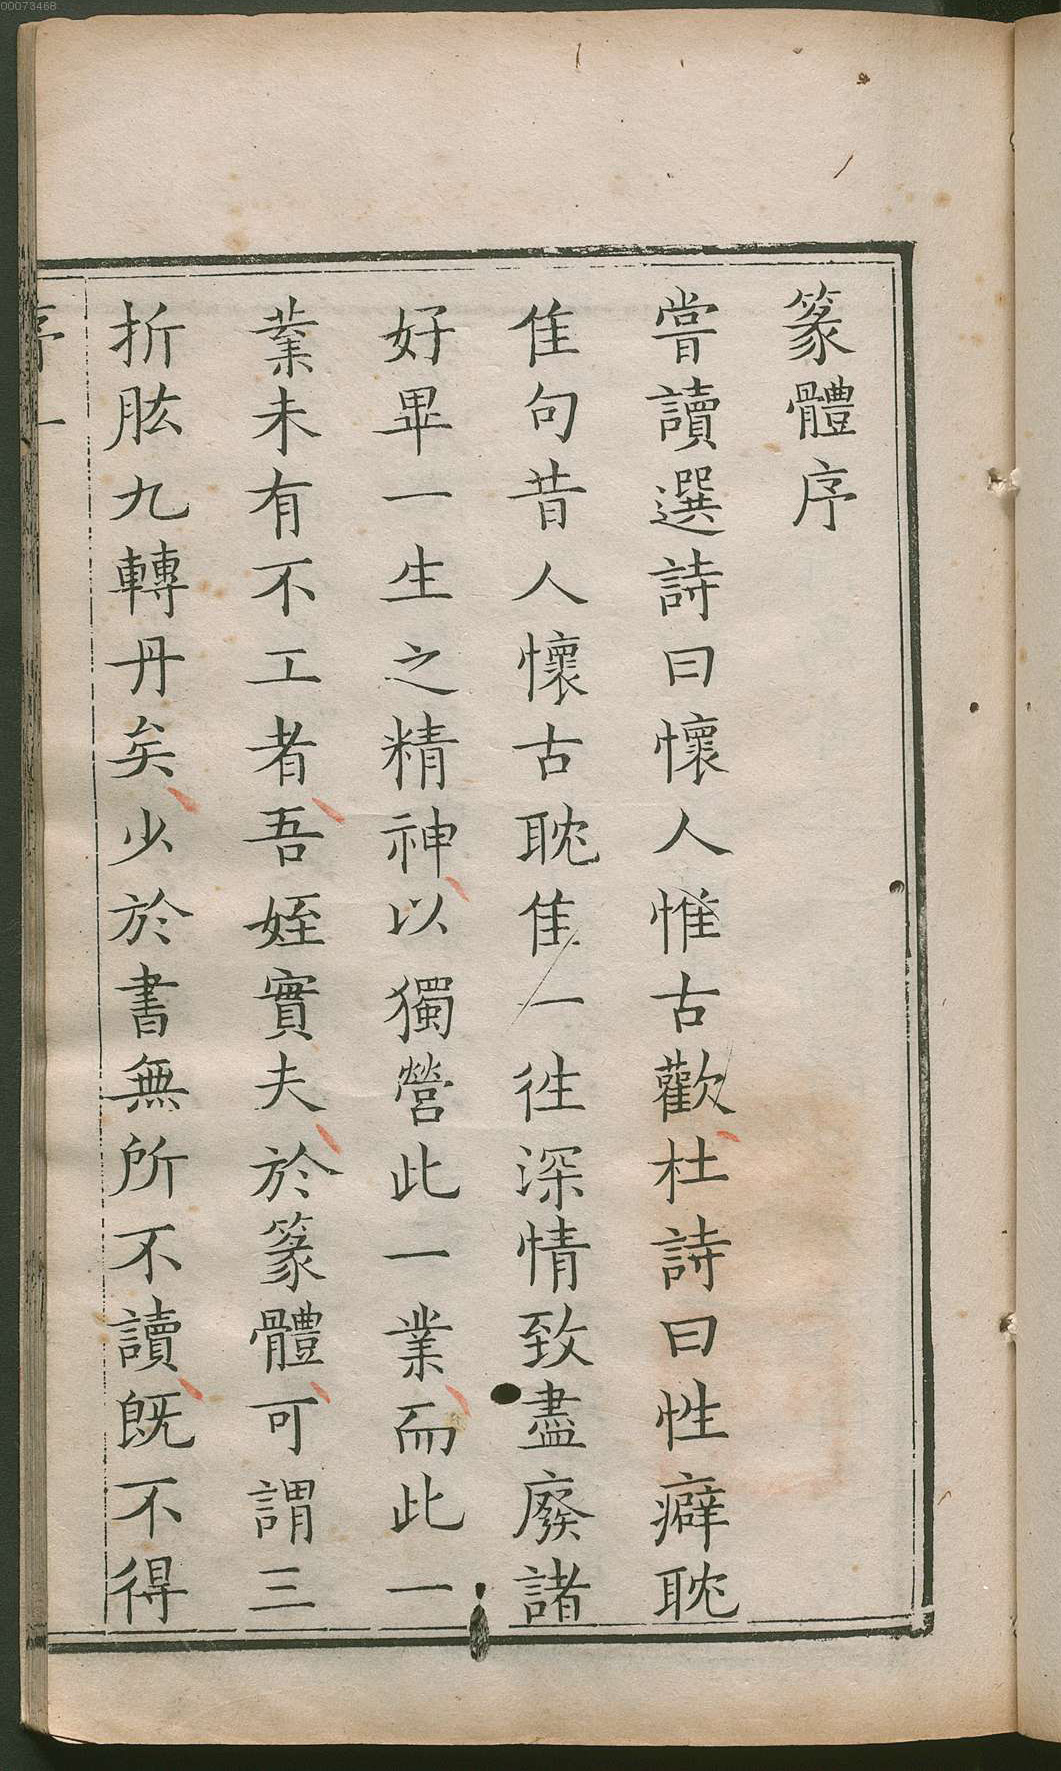 00073468
篆體序
嘗讀選詩曰懷人惟古歡杜詩曰性癖耽
佳句昔人懷古耽佳一徃深情致盡廢諸
好畢一生之精神以獨營此一業而此一
業未有不工者吾姪實夫於篆體可謂三
折肱九轉丹矣少於書無所不讀旣不得
序一